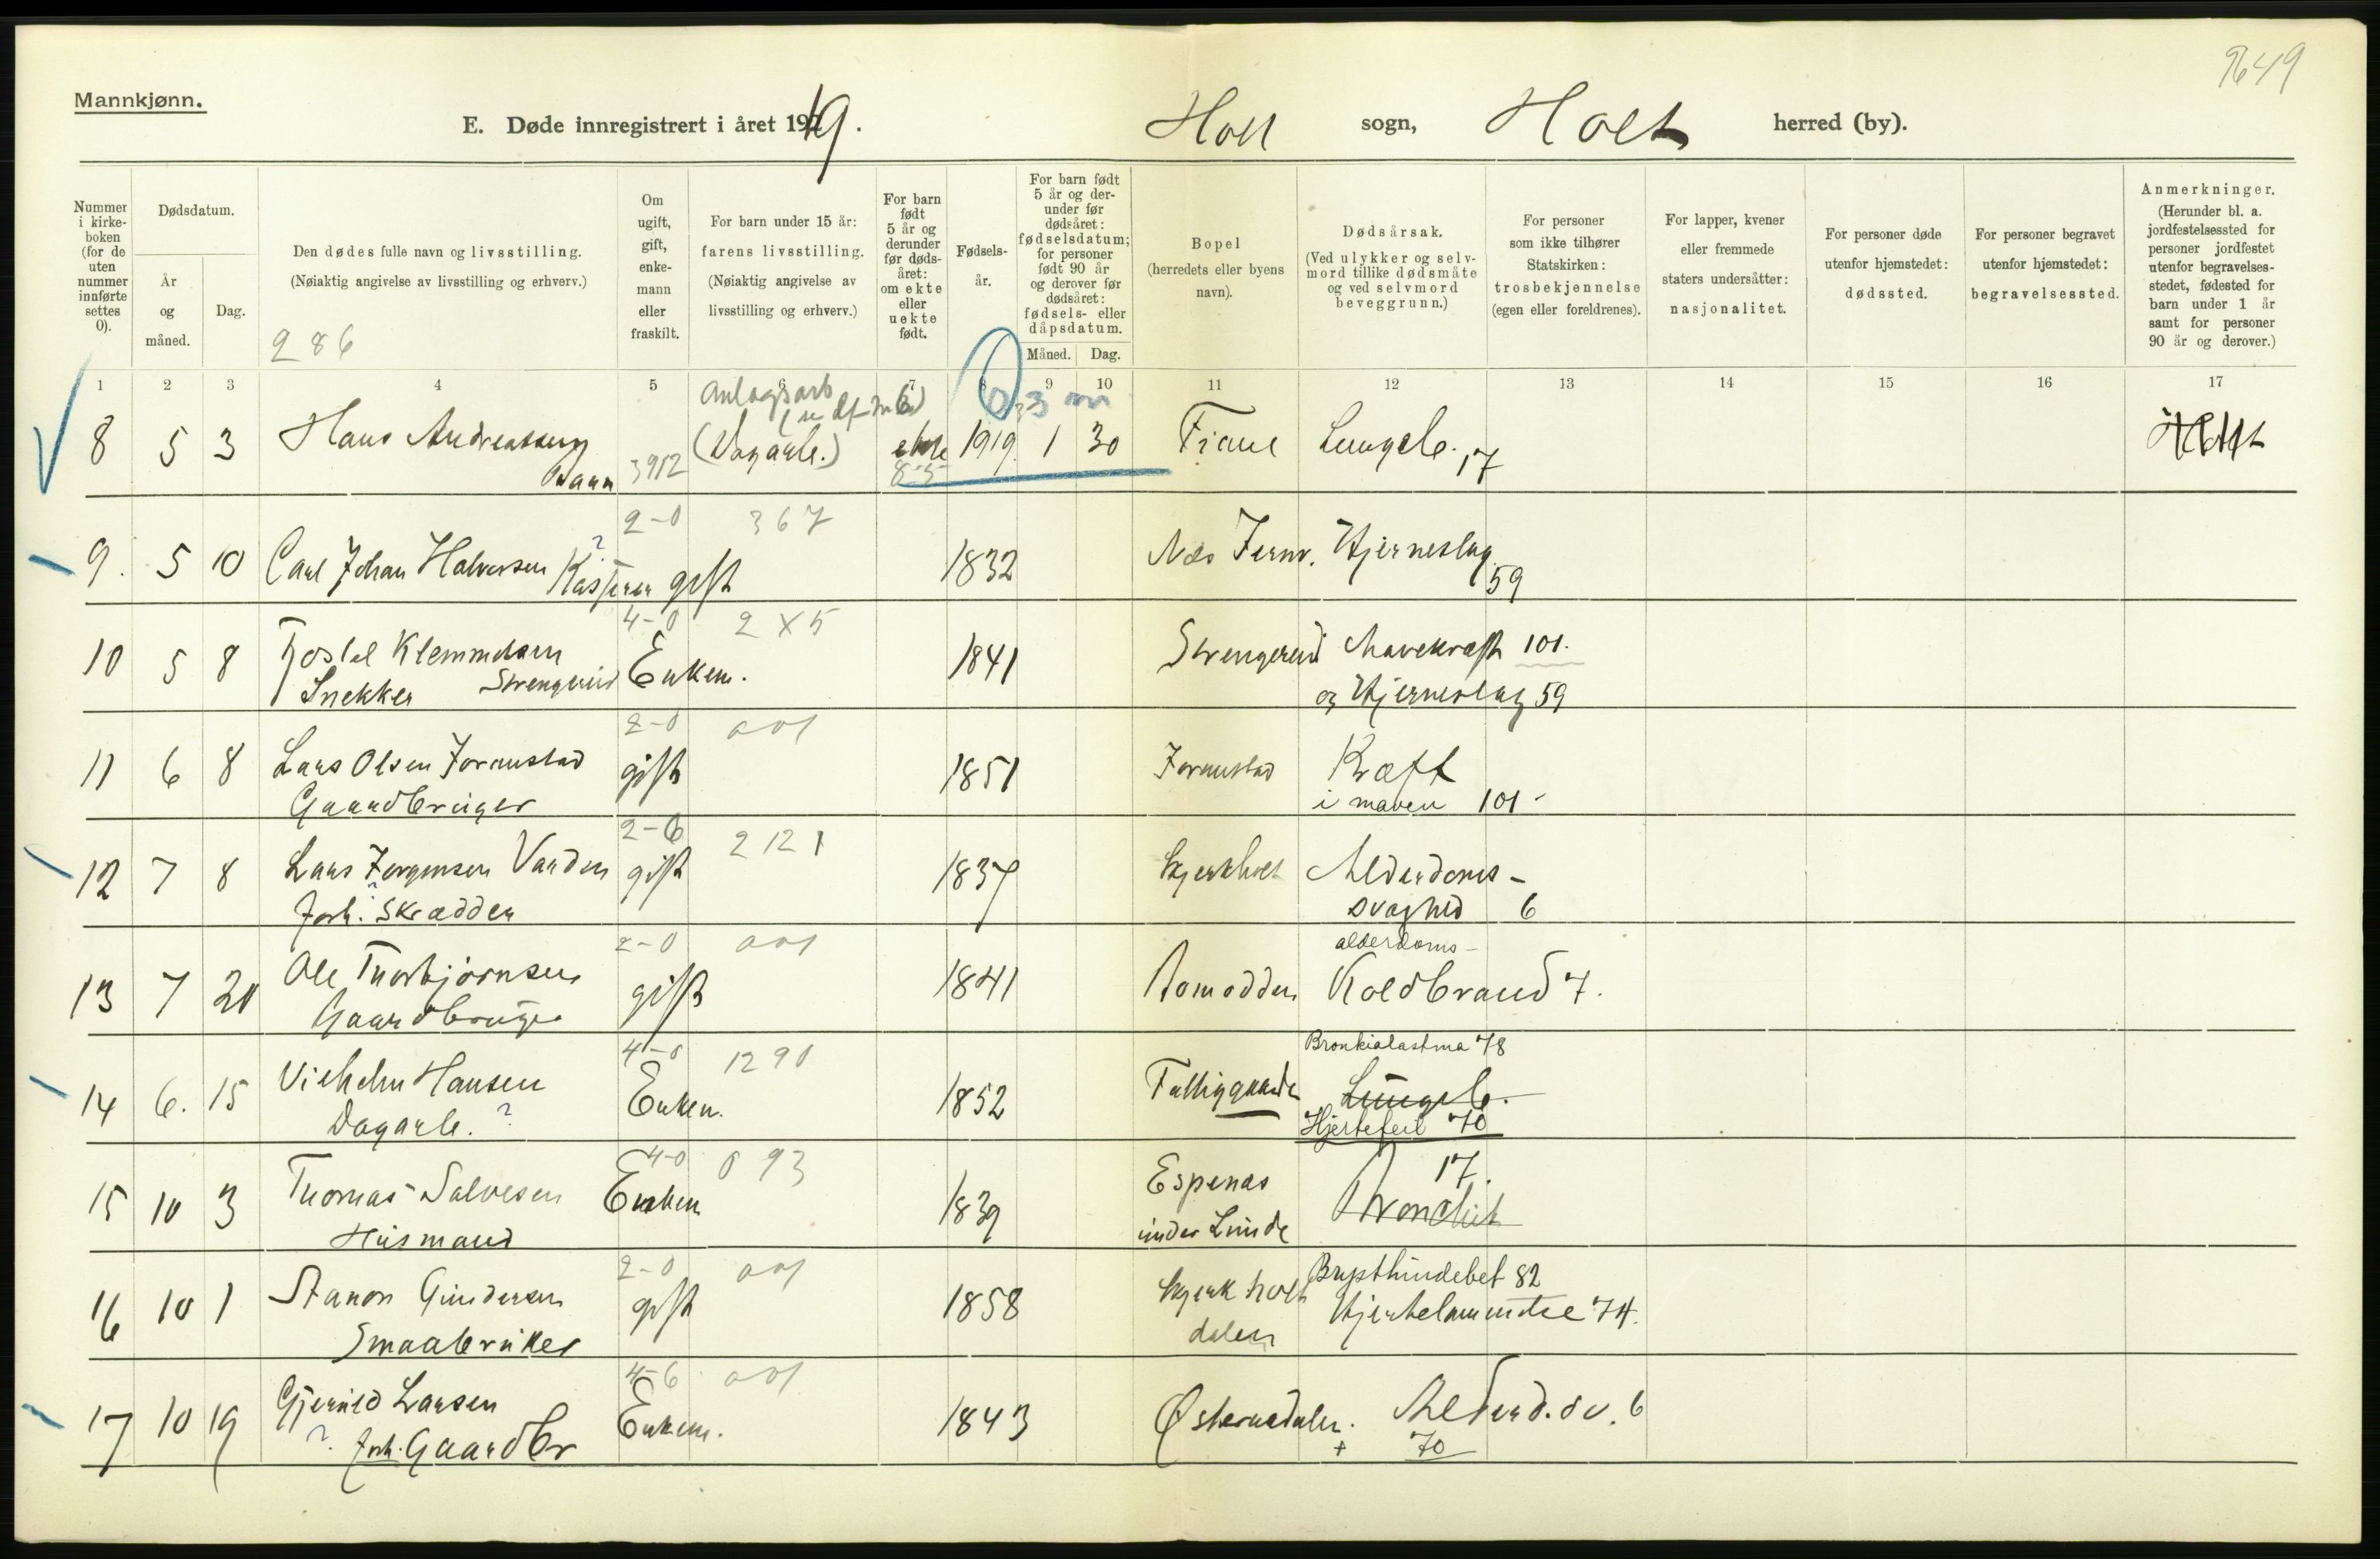 9649
Mannkjønn.
E. Døde innregistrert i året 1919. Holt sogn, Holt herred (by).
Nummer i kirkeboken (for de uten nummer innførte settes 0).
Dødsdatum.
År og måned.
Dag.
Den dødes fulle navn og livsstilling.
(Nøiaktig angivelse av livsstilling og erhverv.)
286
Om ugift, gift, enkemann eller fraskilt.
For barn under 15 år: farens livsstilling.
(Nøiaktig angivelse av livsstilling og erhverv.)
For barn født 5 år og derunder før dødsåret: om ekte eller uekte født.
Fødselsår.
For barn født 5 år og derunder før dødsåret: fødselsdatum; for personer født 90 år og derover før dødsåret: fødsels- eller dåpsdatum.
Måned. Dag.
Bopel
(herredets eller byens navn).
Dødsårsak.
(Ved ulykker og selvmord tillike dødsmåte og ved selvmord beveggrunn.)
For personer som ikke tilhører Statskirken: trosbekjennelse (egen eller foreldrenes).
For lapper, kvener eller fremmede staters undersåtter: nasjonalitet.
For personer døde utenfor hjemstedet: dødssted.
For personer begravet utenfor hjemstedet: begravelsessted.
Anmerkninger.
(Herunder bl. a. jordfestelsessted for personer jordfestet utenfor begravelsesstedet, fødested for barn under 1 år samt for personer 90 år og derover.)
1 2 3 4 5 6 7 8 9 10 11 12 13 14 15 16 17
Anlagsarb
0 3 m
8 5 3 Hans Andreassen (Dagarb.) ekte 1919 1 30 Fiane Lungeb. 17 Holt
Barn 3912 8-5
2-0 367
9. 5 10 Carl Johan Halvorsen ? gift 1832 Nes Jernv. Hjerneslag
59
4-0 2X5
10 5 8 Kjostel Klemmetsen Enkem. 1841 Strengereid Mavekræft 101.
Snekker Strengereid og Hjerneslag 59
2-0 001
11 6 8 Lars Olsen Joranstad gift 1851 Joranstad Kræft
Gaardbruger i maven 101-
2-6 2121
12 7 8 Lars Jørgensen Varden gift 1837 Bjerkholt Alderdoms-
forh. ? Skrædder svaghed 6
2-0 001 alderdoms-
13 7 20 Ole Thorbjörnsen gift 1841 Aamodden Koldbrand 7.
Gaardbruger
4-0 1290 Bronkialastma 78
14 6. 15 Vilhelm Hansen Enkem. 1852 Fattiggaarden Lungeb.
Dagarb. ? Hjertefeil 70
4-0 093 17.
15 10 3 Thomas Salvesen Enkem 1839 Espenes Bronchit
Husmand under Lunde
2-0 001 Brysthindebet 82
16 10 1 Stanon Gundersen gift 1858 Bjerkholt Hjertelammelse 74.
Smaabruker dalen
4-6 001
17 10 19 Gjeruld Larsen Enkem. 1843 Østeraadalen. Alderd. sv. 6
? forh. Gaardbr + 70